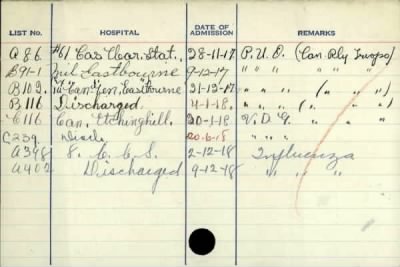 LIST No. HOSPITAL DATE OF ADMISSION REMARKS
A 86 #61 Cas Clear. Stat., 28-11-17 P.U.O. (Can Rly Troops)
B91-1 Mil Eastbourne 9-12-17 " " " " " "
B109. 14 Can Gen, Eastbourne 31-12-17 " " " ( " " " )
B116 Discharged. 4-1-18. " " " ( " " " )
C116 Can. Etchinghill. 20-1-18 V.D.G. " " "
C259. Disch. 20-6-18 " " "
A398 8. C.C.S. 2-12-18 Influenza
A402 Discharged 9-12-18 " " "